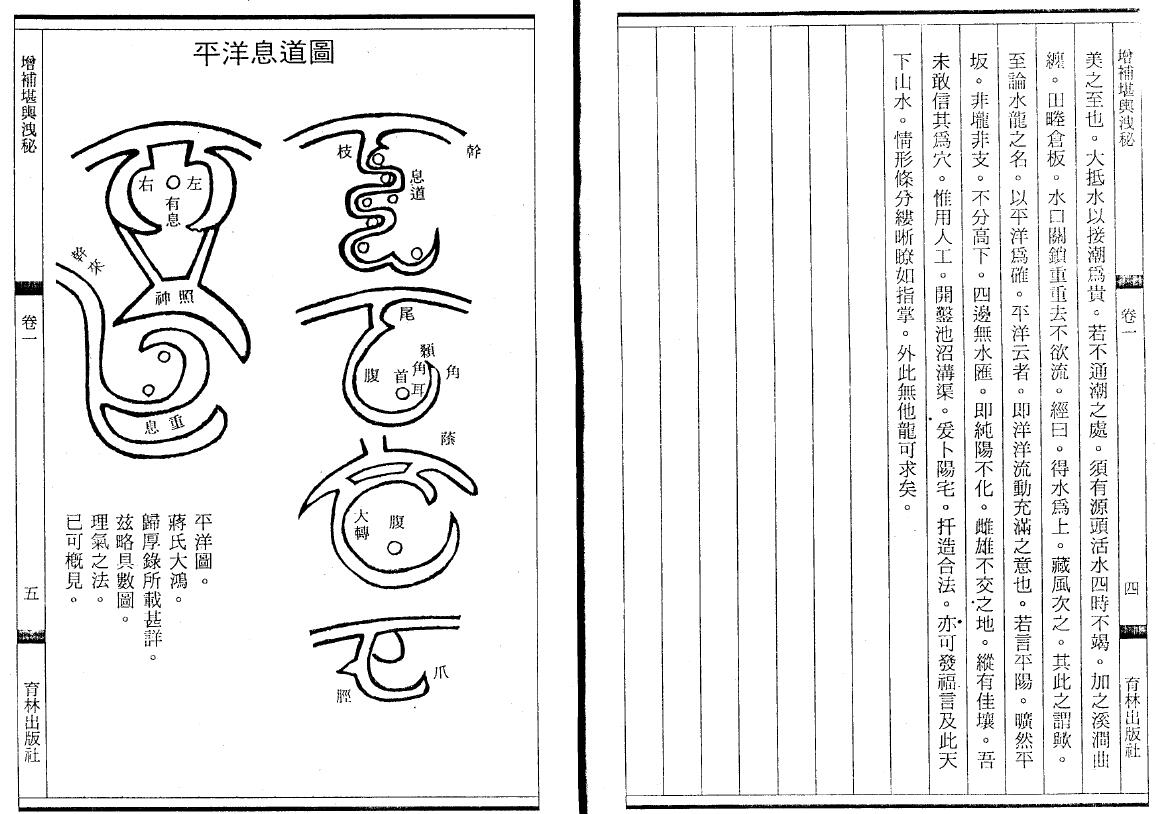 增補堪輿洩秘
卷一
四
育林出版社
美之至也。大抵水以接潮為貴。若不通潮之處。須有源頭活水四時不竭。加之溪澗曲
纏。田疄倉板。水口關鎖重重去不欲流。經曰。得水為上。藏風次之。其此之謂歟。
至論水龍之名。以平洋為確。平洋云者。即洋洋流動充滿之意也。若言平陽。曠然平
坂。非壠非支。不分高下。四邊無水匯。即純陽不化。雌雄不交之地。縱有佳壤。吾
未敢信其為穴。惟用人工。開鑿池沼溝渠。爰卜陽宅。扦造合法。亦可發福言及此天
下山水。情形條分縷晰瞭如指掌。外此無他龍可求矣。
平洋息道圖
幹
枝
息道
尾
腹
首
類
角
耳
角
蔭
大轉
腹
爪
脛
左
右
有息
照神
幹來
重息
平洋圖。
蔣氏大鴻。
歸厚錄所載甚詳。
茲略具數圖。
理氣之法。
已可概見。
增補堪輿洩秘
卷一
五
育林出版社